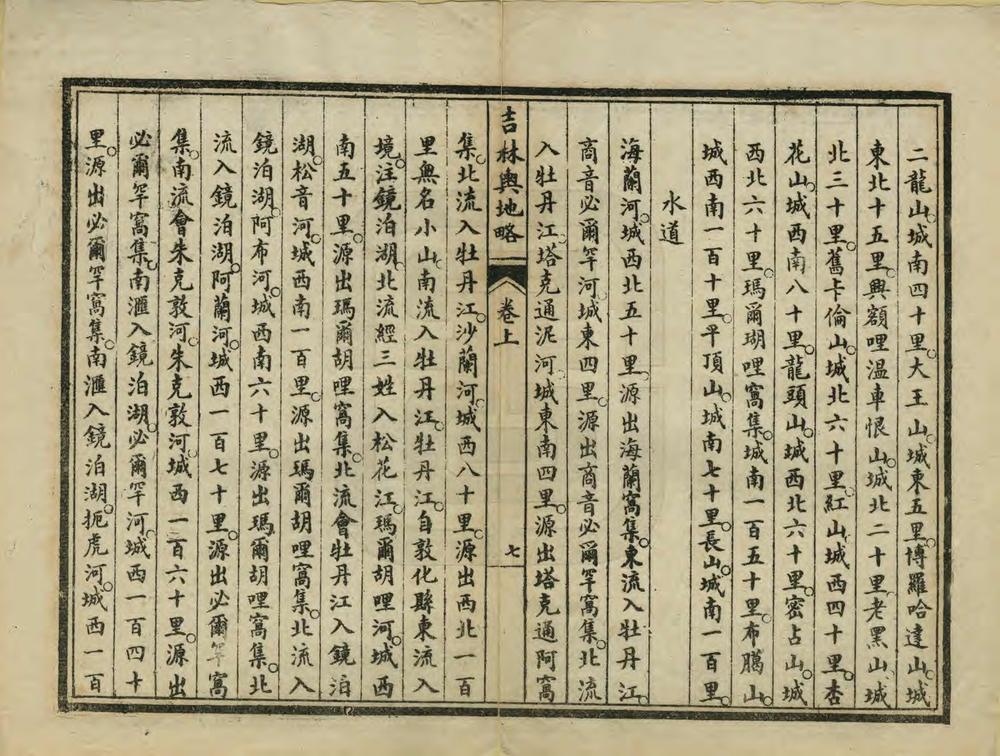 二龍山。城南四十里。大王山。城東五里。博羅哈達山。城
東北十五里。興額哩溫車恨山。城北二十里。老黑山。城
北三十里。舊卡倫山。城北六十里。紅山。城西四十里。杏
花山。城西南八十里。龍頭山。城西北六十里。密占山。城
西北六十里。瑪爾瑚哩窩集。城南一百五十里。布臈山。
城西南一百十里。平頂山。城南七十里。長山。城南一百里。
水道
海蘭河。城西北五十里。源出海蘭窩集。東流入牡丹江。
商音必爾罕河。城東四里。源出商音必爾罕窩集。北流
入牡丹江。塔克通泥河。城東南四里。源出塔克通阿窩
吉林輿地略 卷上 七
集。北流入牡丹江。沙蘭河。城西八十里。源出西北一百
里無名小山。南流入牡丹江。牡丹江。自敦化縣東流入
境。注鏡泊湖。北流經三姓入松花江。瑪爾胡哩河。城西
南五十里。源出瑪爾胡哩窩集。北流會牡丹江入鏡泊
湖。松音河。城西南一百里。源出瑪爾胡哩窩集。北流入
鏡泊湖。阿布河。城西南六十里。源出瑪爾胡哩窩集。北
流入鏡泊湖。阿蘭河。城西一百七十里。源出必爾罕窩
集。南流會朱克敦河。朱克敦河。城西一百六十里。源出
必爾罕窩集。南滙入鏡泊湖。必爾罕河。城西一百四十
里。源出必爾罕窩集。南滙入鏡泊湖。扼虎河。城西一百